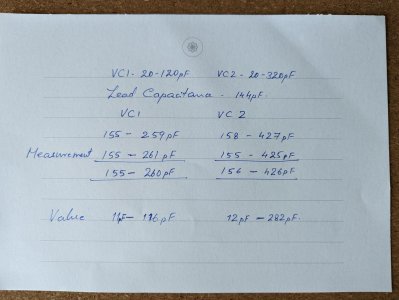 VC1 - 20-120pF VC2 - 20-320pF
Lead Capacitance - 144pF.
VC1 VC2
155 - 259pF 158 - 427pF
Measurement 155 - 261pF 155 - 425pF
155 - 260pF 156 - 426pF
Value 11pF - 116pF 12pF - 282pF.